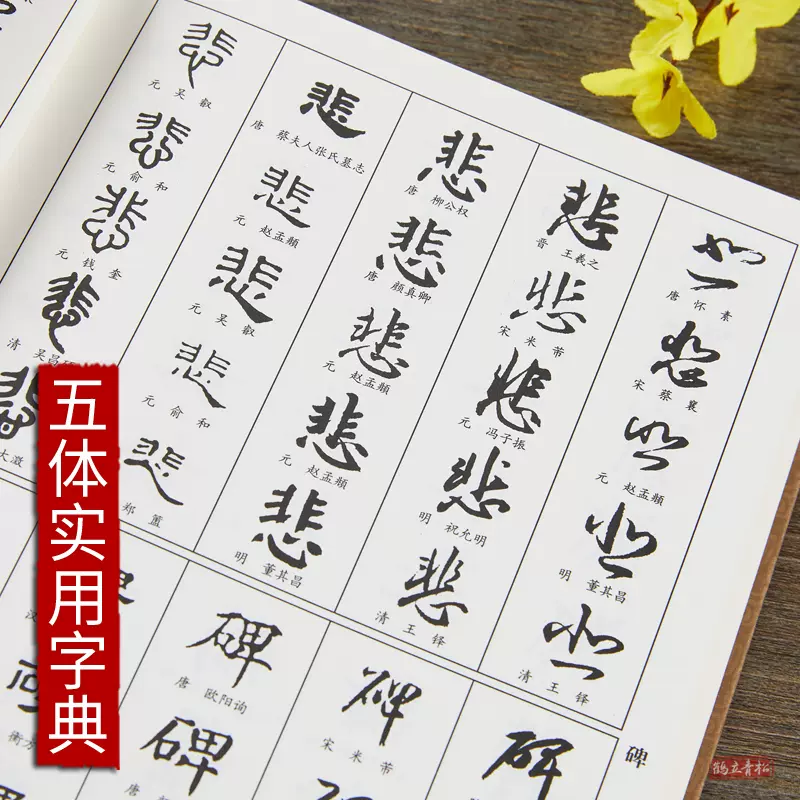 五体实用字典
悲
元 吴叡
悲
元 俞和
悲
元 钱奎
悲
清 吴昌
悲
唐 蔡夫人张氏墓志
悲
元 赵孟頫
悲
元 吴叡
悲
元 俞和
悲
郑簠
悲
唐 柳公权
悲
唐 颜真卿
悲
元 赵孟頫
悲
元 赵孟頫
悲
明 董其昌
悲
晋 王羲之
悲
宋 米芾
悲
元 冯子振
悲
明 祝允明
悲
清 王铎
悲
唐 怀素
悲
宋 蔡襄
悲
元 赵孟頫
悲
明 董其昌
悲
清 王铎
碑
碑
唐 欧阳询
碑
碑
宋 米芾
碑
衡方
鹤立青松